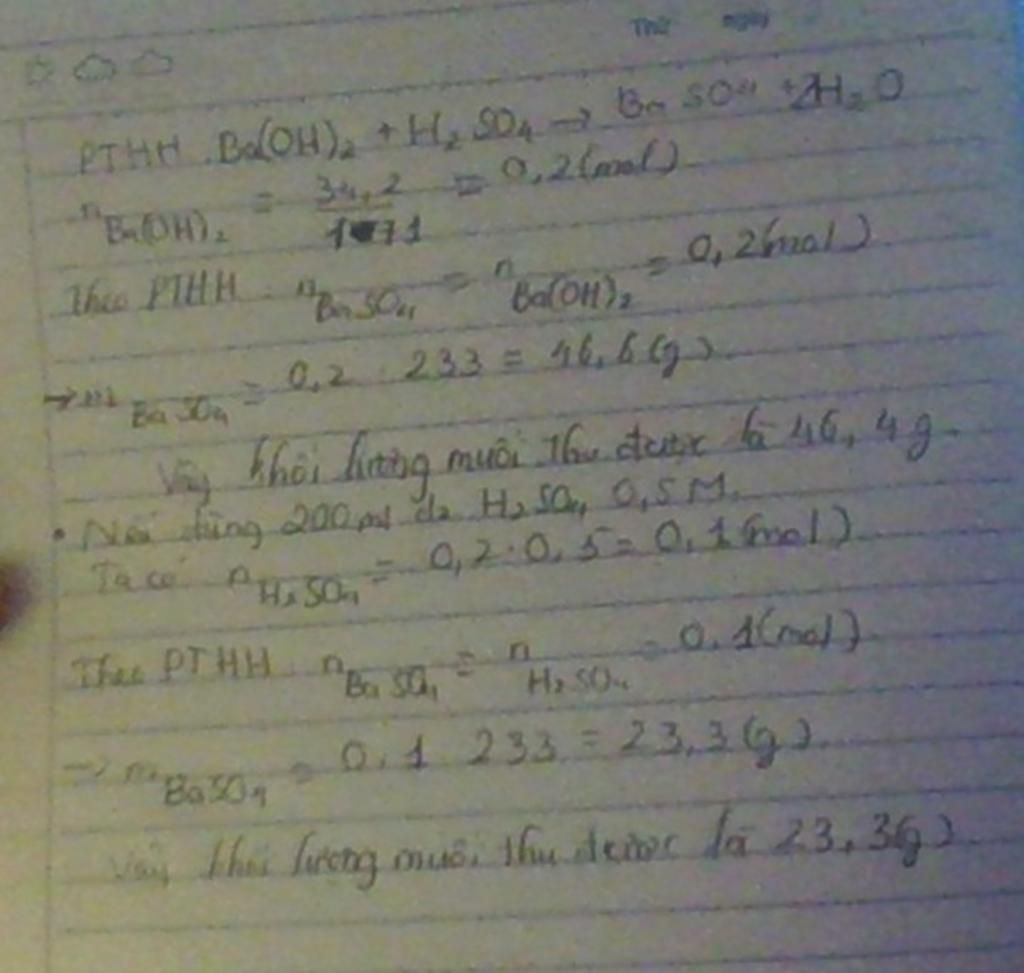 Thứ ngày
PTHH . Ba(OH)₂ + H₂SO₄ → BaSO₄ + 2H₂O
nBa(OH)₂ = 34,2 / 171 = 0,2(mol)
Theo PTHH : nBaSO₄ = nBa(OH)₂ = 0,2(mol)
→ mBaSO₄ = 0,2 . 233 = 46,6(g)
Vậy khối lượng muối thu được là 46,4g.
• Nếu dùng 200ml dd H₂SO₄ 0,5M.
Ta có nH₂SO₄ = 0,2.0,5 = 0,1(mol)
Theo PTHH nBaSO₄ = nH₂SO₄ = 0,1(mol)
→ mBaSO₄ = 0,1 233 = 23,3(g).
Vậy khối lượng muối thu được là 23,3(g)